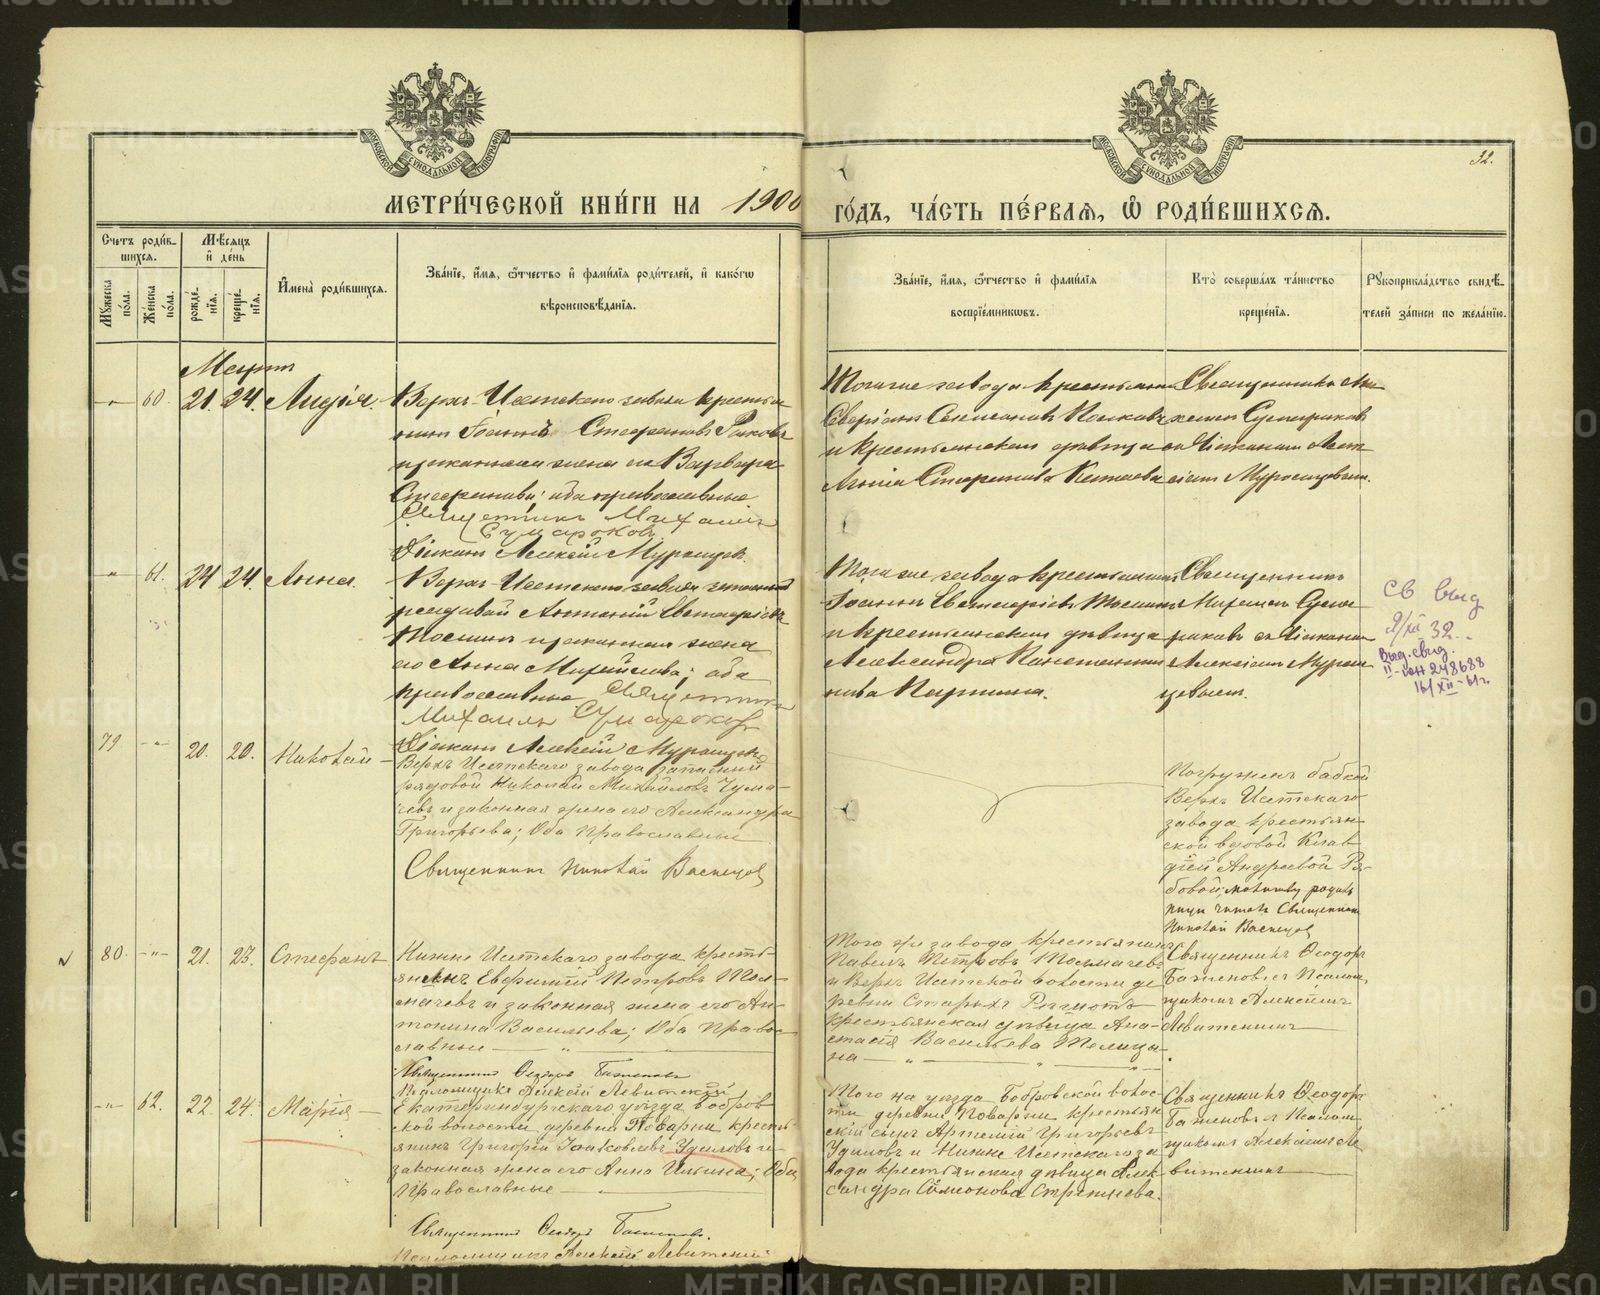 METRIKI.GASO-URAL.RU
МОСКОВСКОЙ СѴНОДАЛЬНОЙ ТИПОГРАФІИ
МОСКОВСКОЙ СѴНОДАЛЬНОЙ ТИПОГРАФІИ
32.
МЕТРИ́ЧЕСКОЙ КНИ́ГИ НА 1900
ГО́ДЪ, ЧА́СТЬ ПЕ́РВАЯ, Ѽ РОДИ́ВШИХСѦ.
Счетъ роди́в-
шихся.
Мѣсяцъ
и҆ де́нь
Му́жеска по́ла.
Же́нска по́ла.
рожде́нїя.
креще́нїя.
И҆мена̀ роди́вшихся.
Зва́нїе, и҆́мя, ѻ҆́тчество и҆ фами́лїя роди́телей, и҆ како́гѡ
вѣроисповѣ́данїя.
Зва́нїе, и҆́мя, ѻ҆́тчество и҆ фами́лїя
воспрїе́мникѡвъ.
Кто̀ соверша́лъ та́инство
креще́нїя.
Рꙋкоприкла́дство свидѣ́-
телей за́писи по жела́нїю.
Мартъ
-"- 60. 21. 24. Лидія.
Верхъ-Исетскаго завода крестья
нинъ Іоаннъ Стефановъ
и законная жена его Варвара
Стефанова; оба православные
Священникъ Михаилъ
Сумароковъ
Діаконъ Алексій
Того же завода крестьянинъ
и крестьянская дѣвица
Стефанова
Священникъ Ми-
хаилъ Сумароковъ
съ діакономъ Алек
сіемъ
-"- 61. 24 24. Анна.
Верхъ-Исетскаго завода запасный
рядовой Антоній
и законная жена
его Анна Михайлова; оба
православные Священникъ
Михаилъ Сумароковъ
Діаконъ Алексій
Того же завода крестьянинъ
Іоаннъ
и крестьянская дѣвица
Александра Константи
нова
Священникъ
Михаилъ Сума
роковъ съ діакономъ
Алексіемъ
св выд
32
Выд. свид.
248688
16/XII-61г.
79 -"- 20. 20. Николай
Верхъ Исетскаго завода запасный
рядовой Николай Михайловъ Чума-
чевъ и законная жена его Александра
Григорьева; Оба Православные
Священникъ Николай Васнецовъ
Погруженъ бабкой
Верхъ Исетскаго
завода крестьян-
ской вдовой Клав
діей Андреевой Ря-
бовой; молитву родиль
ницы читалъ Священникъ
Николай Васнецов
80. -"- 21. 23. Стефанъ
Нижне Исетскаго завода кресть-
янинъ Евфимій Петровъ Тол-
мачевъ и законная жена его Ан-
тонина Васильева; Оба Правос-
лавные
Священникъ Ѳеодоръ Баженовъ
Псаломщикъ Алексій Левитскій
Того же завода крестьянинъ
Павелъ Петровъ Толмачевъ
и Верхъ Исетской волости де
ревни Старыхъ Решетъ
крестьянская дѣвица Ана-
стасія Васильева Телицы-
на
Священникъ Ѳеодоръ
Баженовъ съ Псалом
щикомъ Алексѣемъ
Левитскимъ
-"- 62. 22. 24. Марія
Екатеринбургскаго уѣзда Бобров
ской волости деревни Поварни кресть
янинъ Григорій Іаковлевъ Удиловъ и
законная жена его Анна Ильина; Оба
Православные
Священникъ Ѳеодоръ Баженовъ.
Псаломщикъ Алексѣй Левитскій
Того же уѣзда Бобровской волос
ти деревни Поварни крестьян
скій сынъ Артемій Григорьевъ
Удиловъ и Нижне Исетскаго за
вода крестьянская дѣвица Алек
сандра Симеонова Стрежнева.
Священникъ Ѳеодоръ
Баженовъ съ Псалом
щикомъ Алексѣемъ Ле
витскимъ